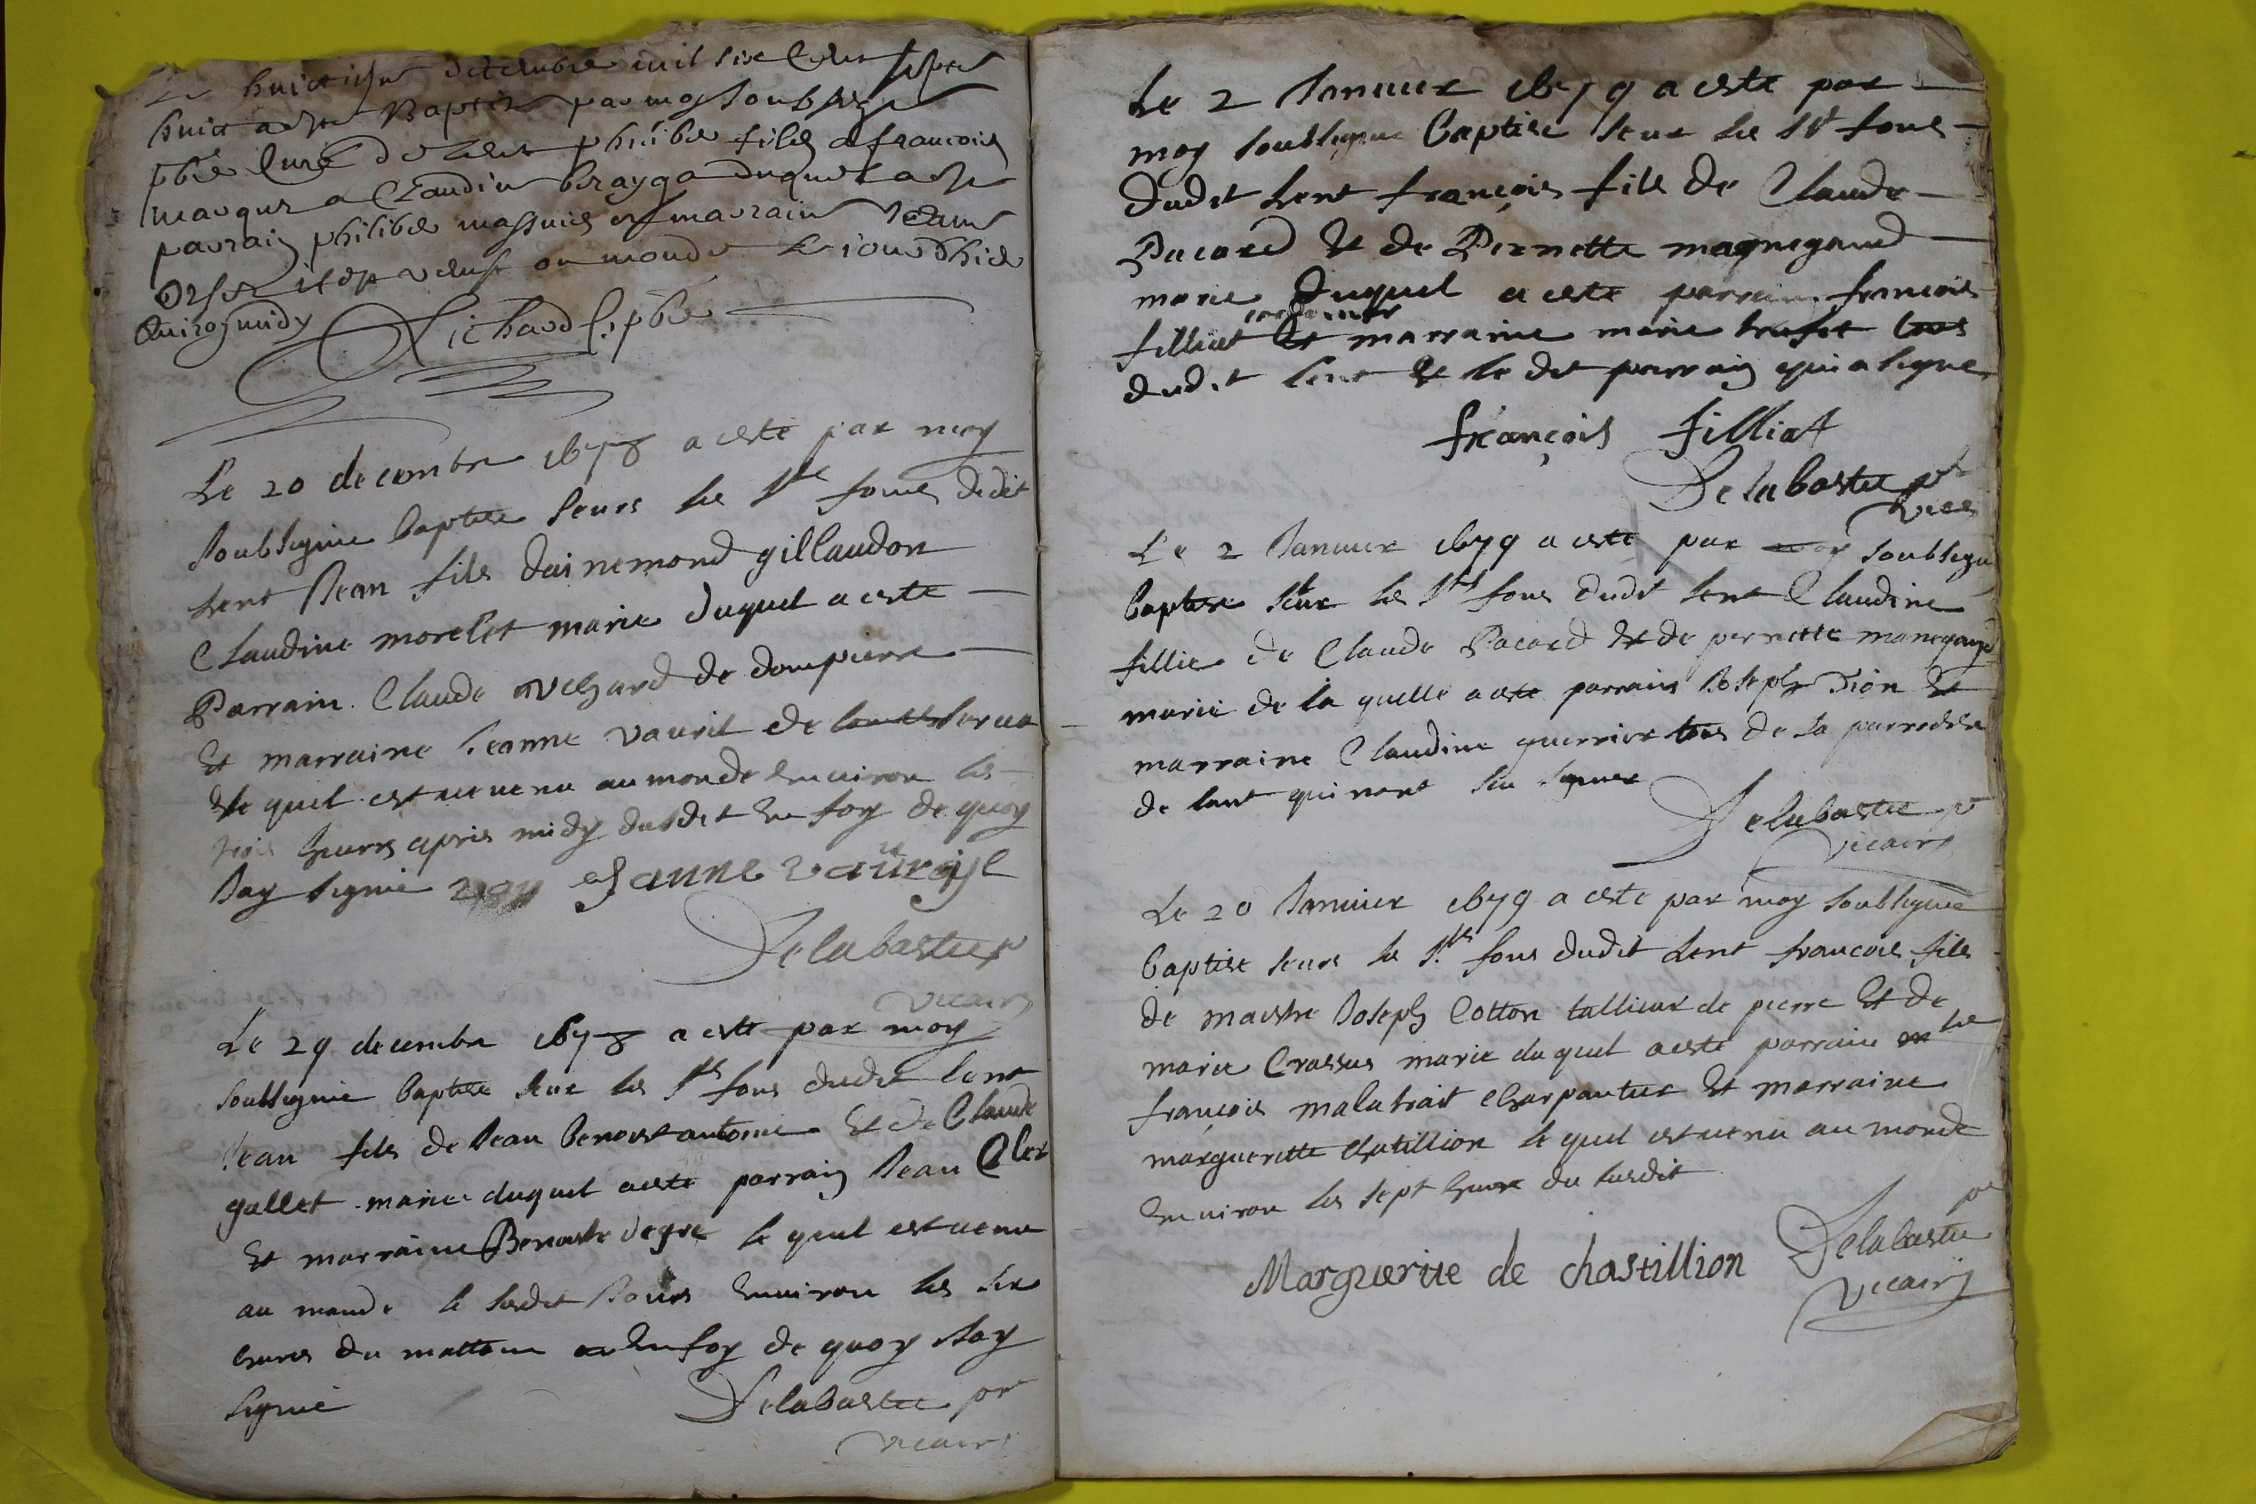 huictiesme decembre mil six cent septante
huict a este Baptisé par moy soubsigné
pbre Curé de Lent philibe fils a francois
a Claudine duquel a este
parrain philibe et marraine
venust au monde le jourdhier
midy
Richard C. pbre
Le 20 decembre 1678 a esté par moy
soubsigné baptise seurs les Sts fons dudit
Lent Jean fils dainemond gillaudon
Claudine morelet marie duquel a esté
Parrain Claude de dompierre
Et marraine Jeanne vauril de
le quel est vevenu au monde environ les
trois heures apres midy dudit En foy de quoy
Jay signé Janne vauroyl
Delabastie pr
vicaire
Le 29 decembre 1678 a esté par moy
soubsigné baptise seur les Sts fons dudit lent
Jean fils de Jean benoist antoine Et de Claude
gallet marie duquel a este parrain Jean Cler
Et marraine Benoiste degre le quel est venu
au monde le susdit Jours environ les six
heures du mattein En foy de quoy Jay
signé Delabastie pr
vicaire
Le 2 Janvier 1679 a esté par
moy soubsigné baptise seur les Sts fons
dudit Lent françois fils de Claude
Pacard Et de Pernette magnegaud
marie Duquel a esté parrain françois
filliat cordonier Et marraine marie trufet tous
dudit lent Et le dit parrain qui a signe
françois filliat
Delabastie pr
vice
Le 2 Janvier 1679 a esté par moy soubsigne
baptise seur les Sts fons dudit lent Claudine
fillie de Claude Pacard Et de pernette manegaud
marie de la quelle a este parrain Joseph Dion Et
marraine Claudine guerrier tous de la parroisse
de lent qui nont seu signer
Delabastie pr
vicaire
Le 20 Janvier 1679 a esté par moy soubsigné
baptise seurs les Sts fons dudit Lent francois fils
de maistre Joseph Cotton tallieur de pierre Et de
marie Crassus marie duquel a esté parrain mtre
françois malatrait charpantier Et marraine
marguerette chatillion le quel est venu au monde
Environ les sept heure du susdit
Marguerite de chastillion Delabastie pr
vicaire